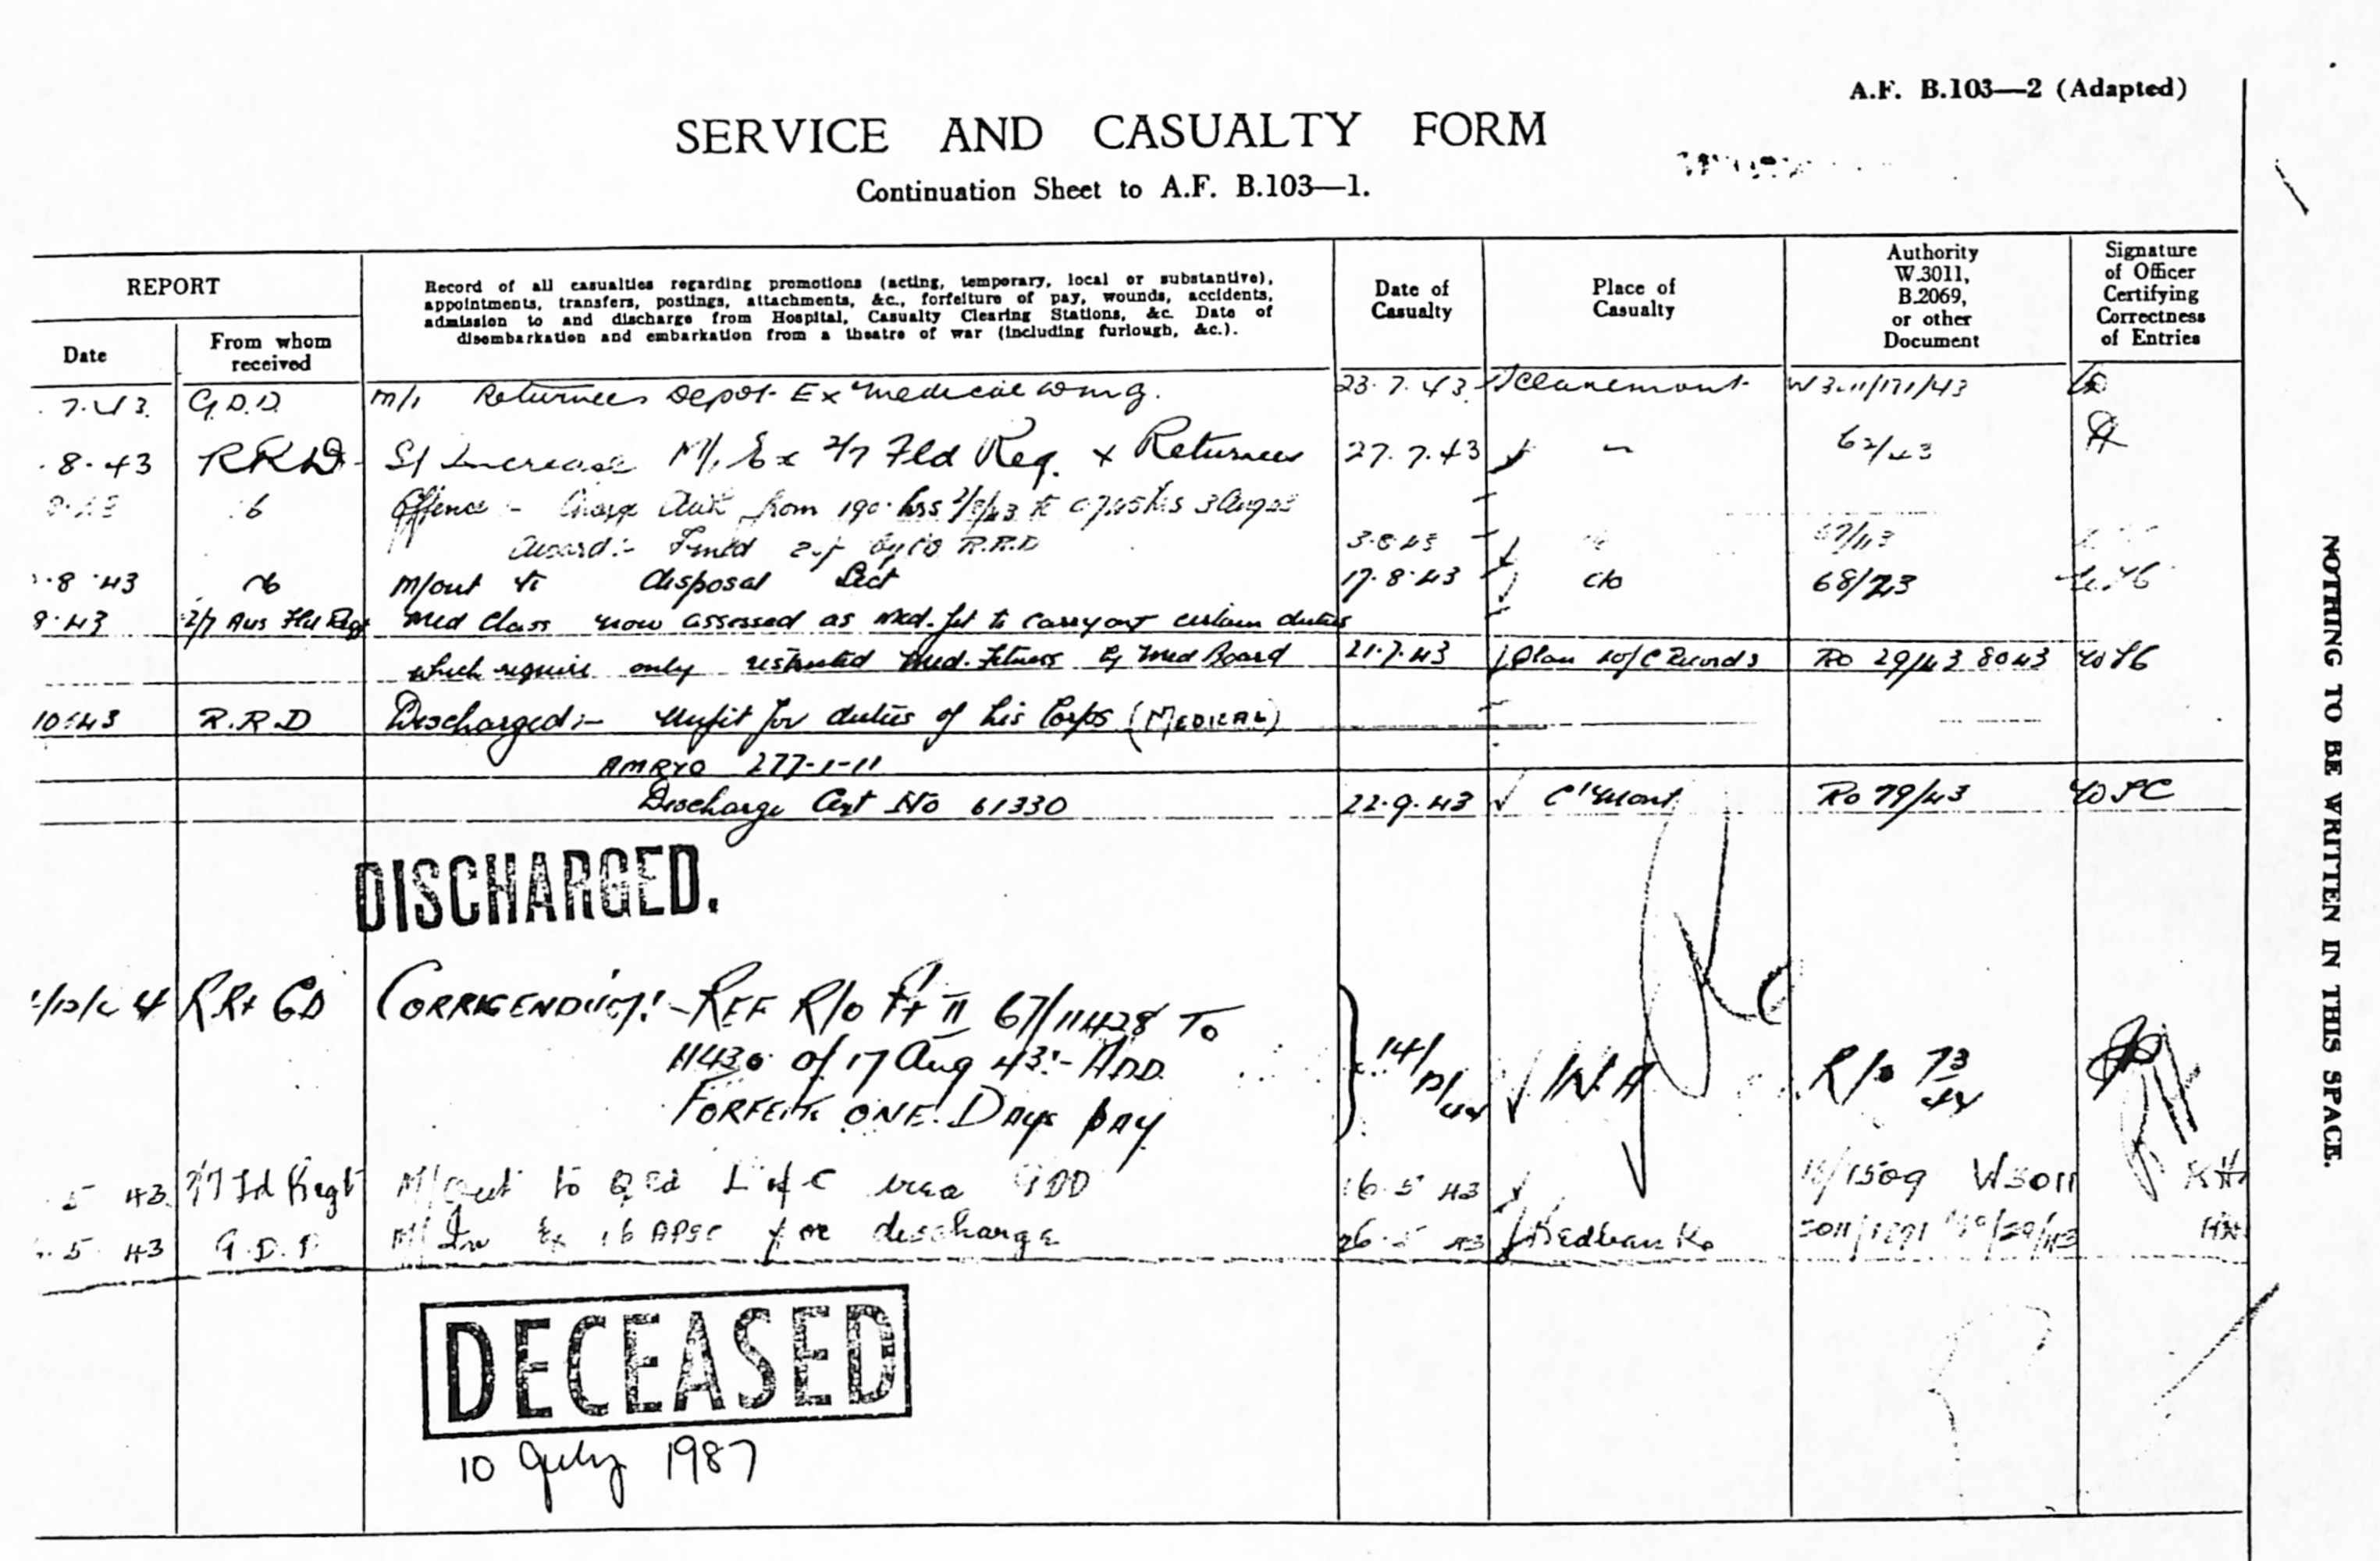 A.F. B.103—2 (Adapted)
SERVICE AND CASUALTY FORM
Continuation Sheet to A.F. B.103—1.
REPORT
Date
From whom
received
Record of all casualties regarding promotions (acting, temporary, local or substantive),
appointments, transfers, postings, attachments, &c., forfeiture of pay, wounds, accidents,
admission to and discharge from Hospital, Casualty Clearing Stations, &c. Date of
disembarkation and embarkation from a theatre of war (including furlough, &c.).
Date of
Casualty
Place of
Casualty
Authority
W.3011,
B.2069,
or other
Document
Signature
of Officer
Certifying
Correctness
of Entries
7.43. G.D.D. m/i Returnees Depot Ex Medical Wing. 23.7.43. Claremont
8.43 RRD S/ Increase M/i Ex 2/7 Fld Reg. + Returnees 27.7.43 62/43
Offence - from hrs 2/8/43 to 0745 hrs 3 Aug
Award:- R.R.D 3.8.43 67/43
8.43 m/out to disposal 17.8.43 68/43
9.43 2/7 Aus Fld Regt Med Class now assessed as med. fit to carry out certain duties
which require only restricted med. fitness by Med Board 21.7.43 Records RO 29/43 8043
10.43 R.R.D Discharged:- Unfit for duties of his Corps (MEDICAL)
AMR&O 277-1-11
Discharge Cert No 61330 22.9.43 C'mont Ro 79/43
DISCHARGED.
RR+GD CORRIGENDUM:- REF R/o Pt II 67/11428 To
11430 of 17 Aug 43:- ADD
FORFEITS ONE Days PAY W A R/o 73
5 43 2/7 Fd Regt M/out to Qld L of C area GDD 16.5 43 W3011
5 43 M/In Ex 16 for discharge 26.5 43 Redbank
DECEASED
10 July 1987
NOTHING TO BE WRITTEN IN THIS SPACE.